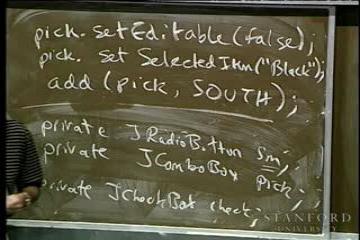 pick. setEditable(false);
pick. set SelectedItem("Black");
add (pick, SOUTH);
private JRadioButton sm;
private JComboBox pick;
private JCheckBox check;
STANFORD
UNIVERSITY